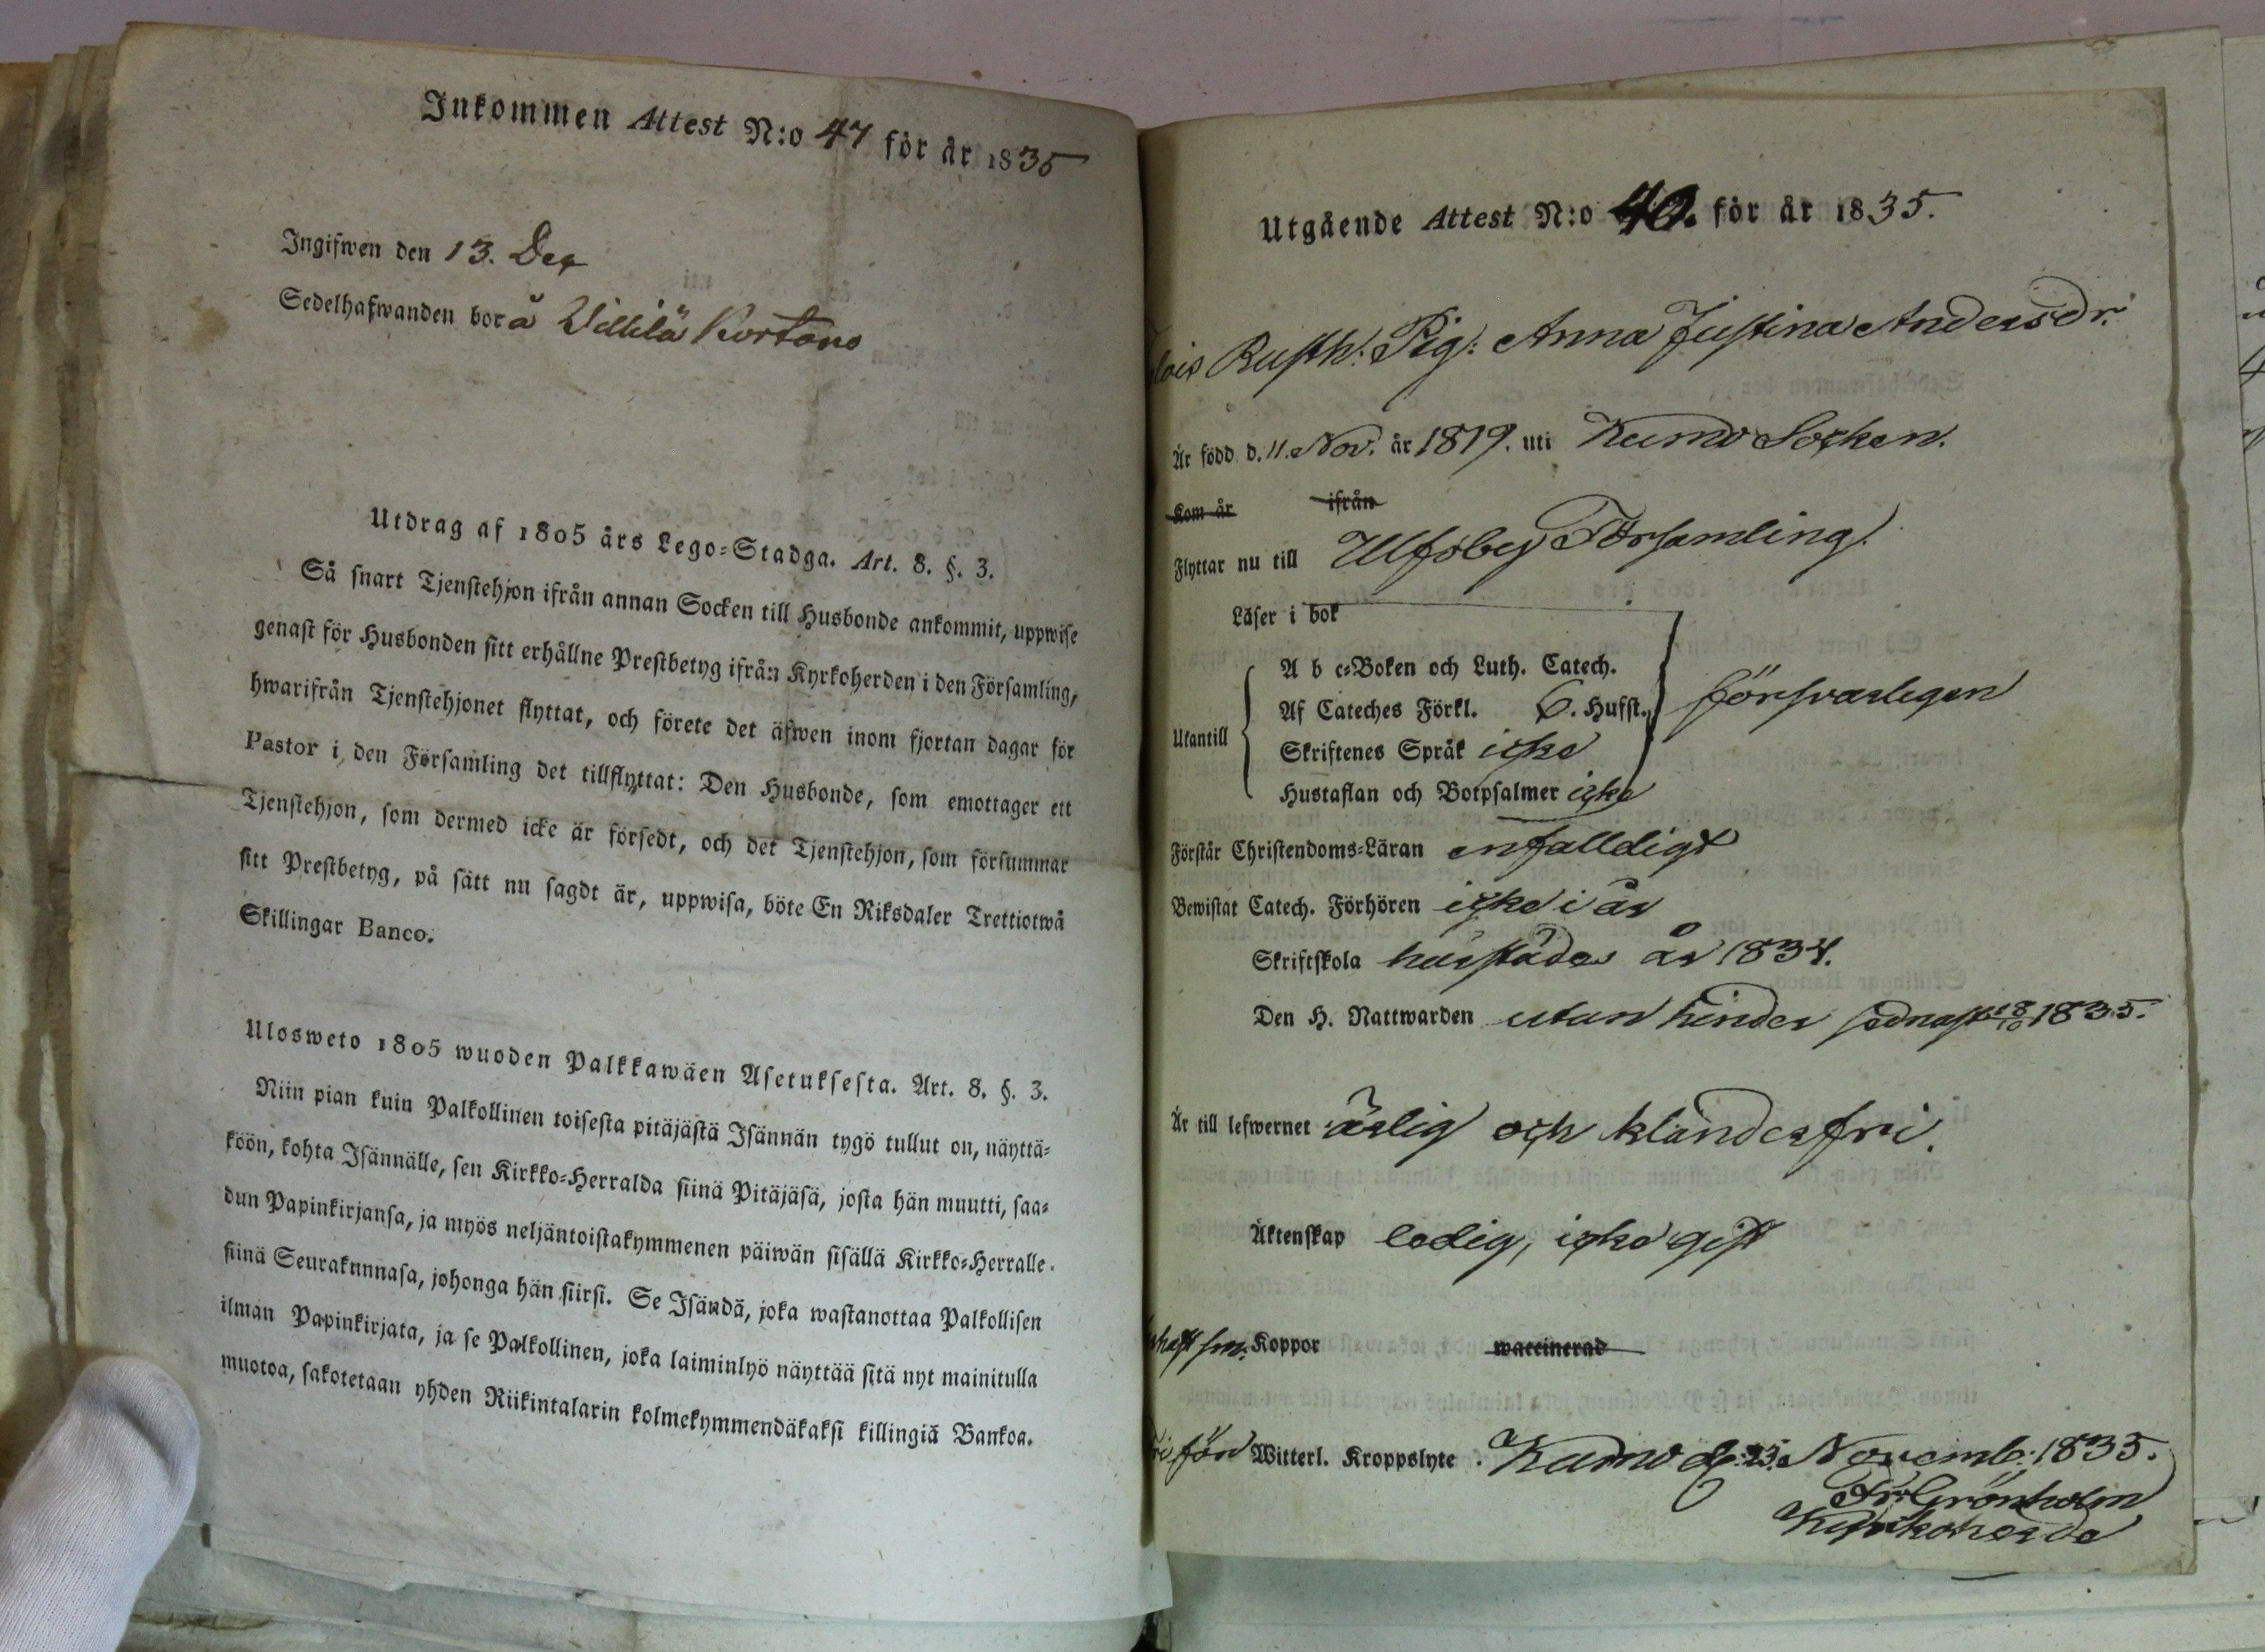 Inkommen Attest N:o 47 för år 1835
Ingifwen den 13. Dec
Sedelhafwanden bor å Villilä Kortano
Utdrag af 1805 års Lego-Stadga. Art. 8. §. 3.
Så snart Tjenstehjon ifrån annan Socken till Husbonde ankommit, uppwise
genast för Husbonden sitt erhållne Prestbetyg ifrån Kyrkoherden i den Församling,
hwarifrån Tjenstehjonet flyttat, och förete det äfwen inom fjortan dagar för
Pastor i den Församling det tillflyttat: Den Husbonde, som emottager ett
Tjenstehjon, som dermed icke är försedt, och det Tjenstehjon, som försummar
sitt Prestbetyg, på sätt nu sagdt är, uppwisa, böte En Riksdaler Trettiotwå
Skillingar Banco.
Ulosweto 1805 wuoden Palkkawäen Asetuksesta. Art. 8. §. 3.
Niin pian kuin Palkollinen toisesta pitäjästä Isännän tygö tullut on, näyttä-
köön, kohta Isännälle, sen Kirkko-Herralda siinä Pitäjäsä, josta hän muutti, saa-
dun Papinkirjansa, ja myös neljäntoistakymmenen päiwän sisällä Kirkko-Herralle
siinä Seurakunnasa, johonga hän siirsi. Se Isändä, joka wastanottaa Palkollisen
ilman Papinkirjata, ja se Palkollinen, joka laiminlyö näyttää sitä nyt mainitulla
muotoa, sakotetaan yhden Riikintalarin kolmekymmendäkaksi killingiä Bankoa.
Utgående Attest N:o 40. för år 1835.
Rusth. Pig: Anna Justina Andersdr.
Är född d. 11. Nov. år 1819. uti Kumo Socken.
Kom år ifrån
Flyttar nu till Ulfsby Församling.
Läser i bok
A b c-Boken och Luth. Catech.
Af Cateches Förkl. 6. Hufst. försvarligen
Utantill
Skriftenes Språk icke
Hustaflan och Botpsalmer icke
Förstår Christendoms-Läran enfalldigt
Bewistat Catech. Förhören icke i år
Skriftskola härstädes år 1834.
Den H. Nattwarden utan hinder sednast 18/10 1835.
Är till lefwernet ärlig och klanderfri.
Äktenskap ledig, icke gift
haft sm. Koppor waccinerad
fri för Witterl. Kroppslyte. Kumo d. 23. Novemb. 1835.
Fr: Grönholm
Kyrkoherde